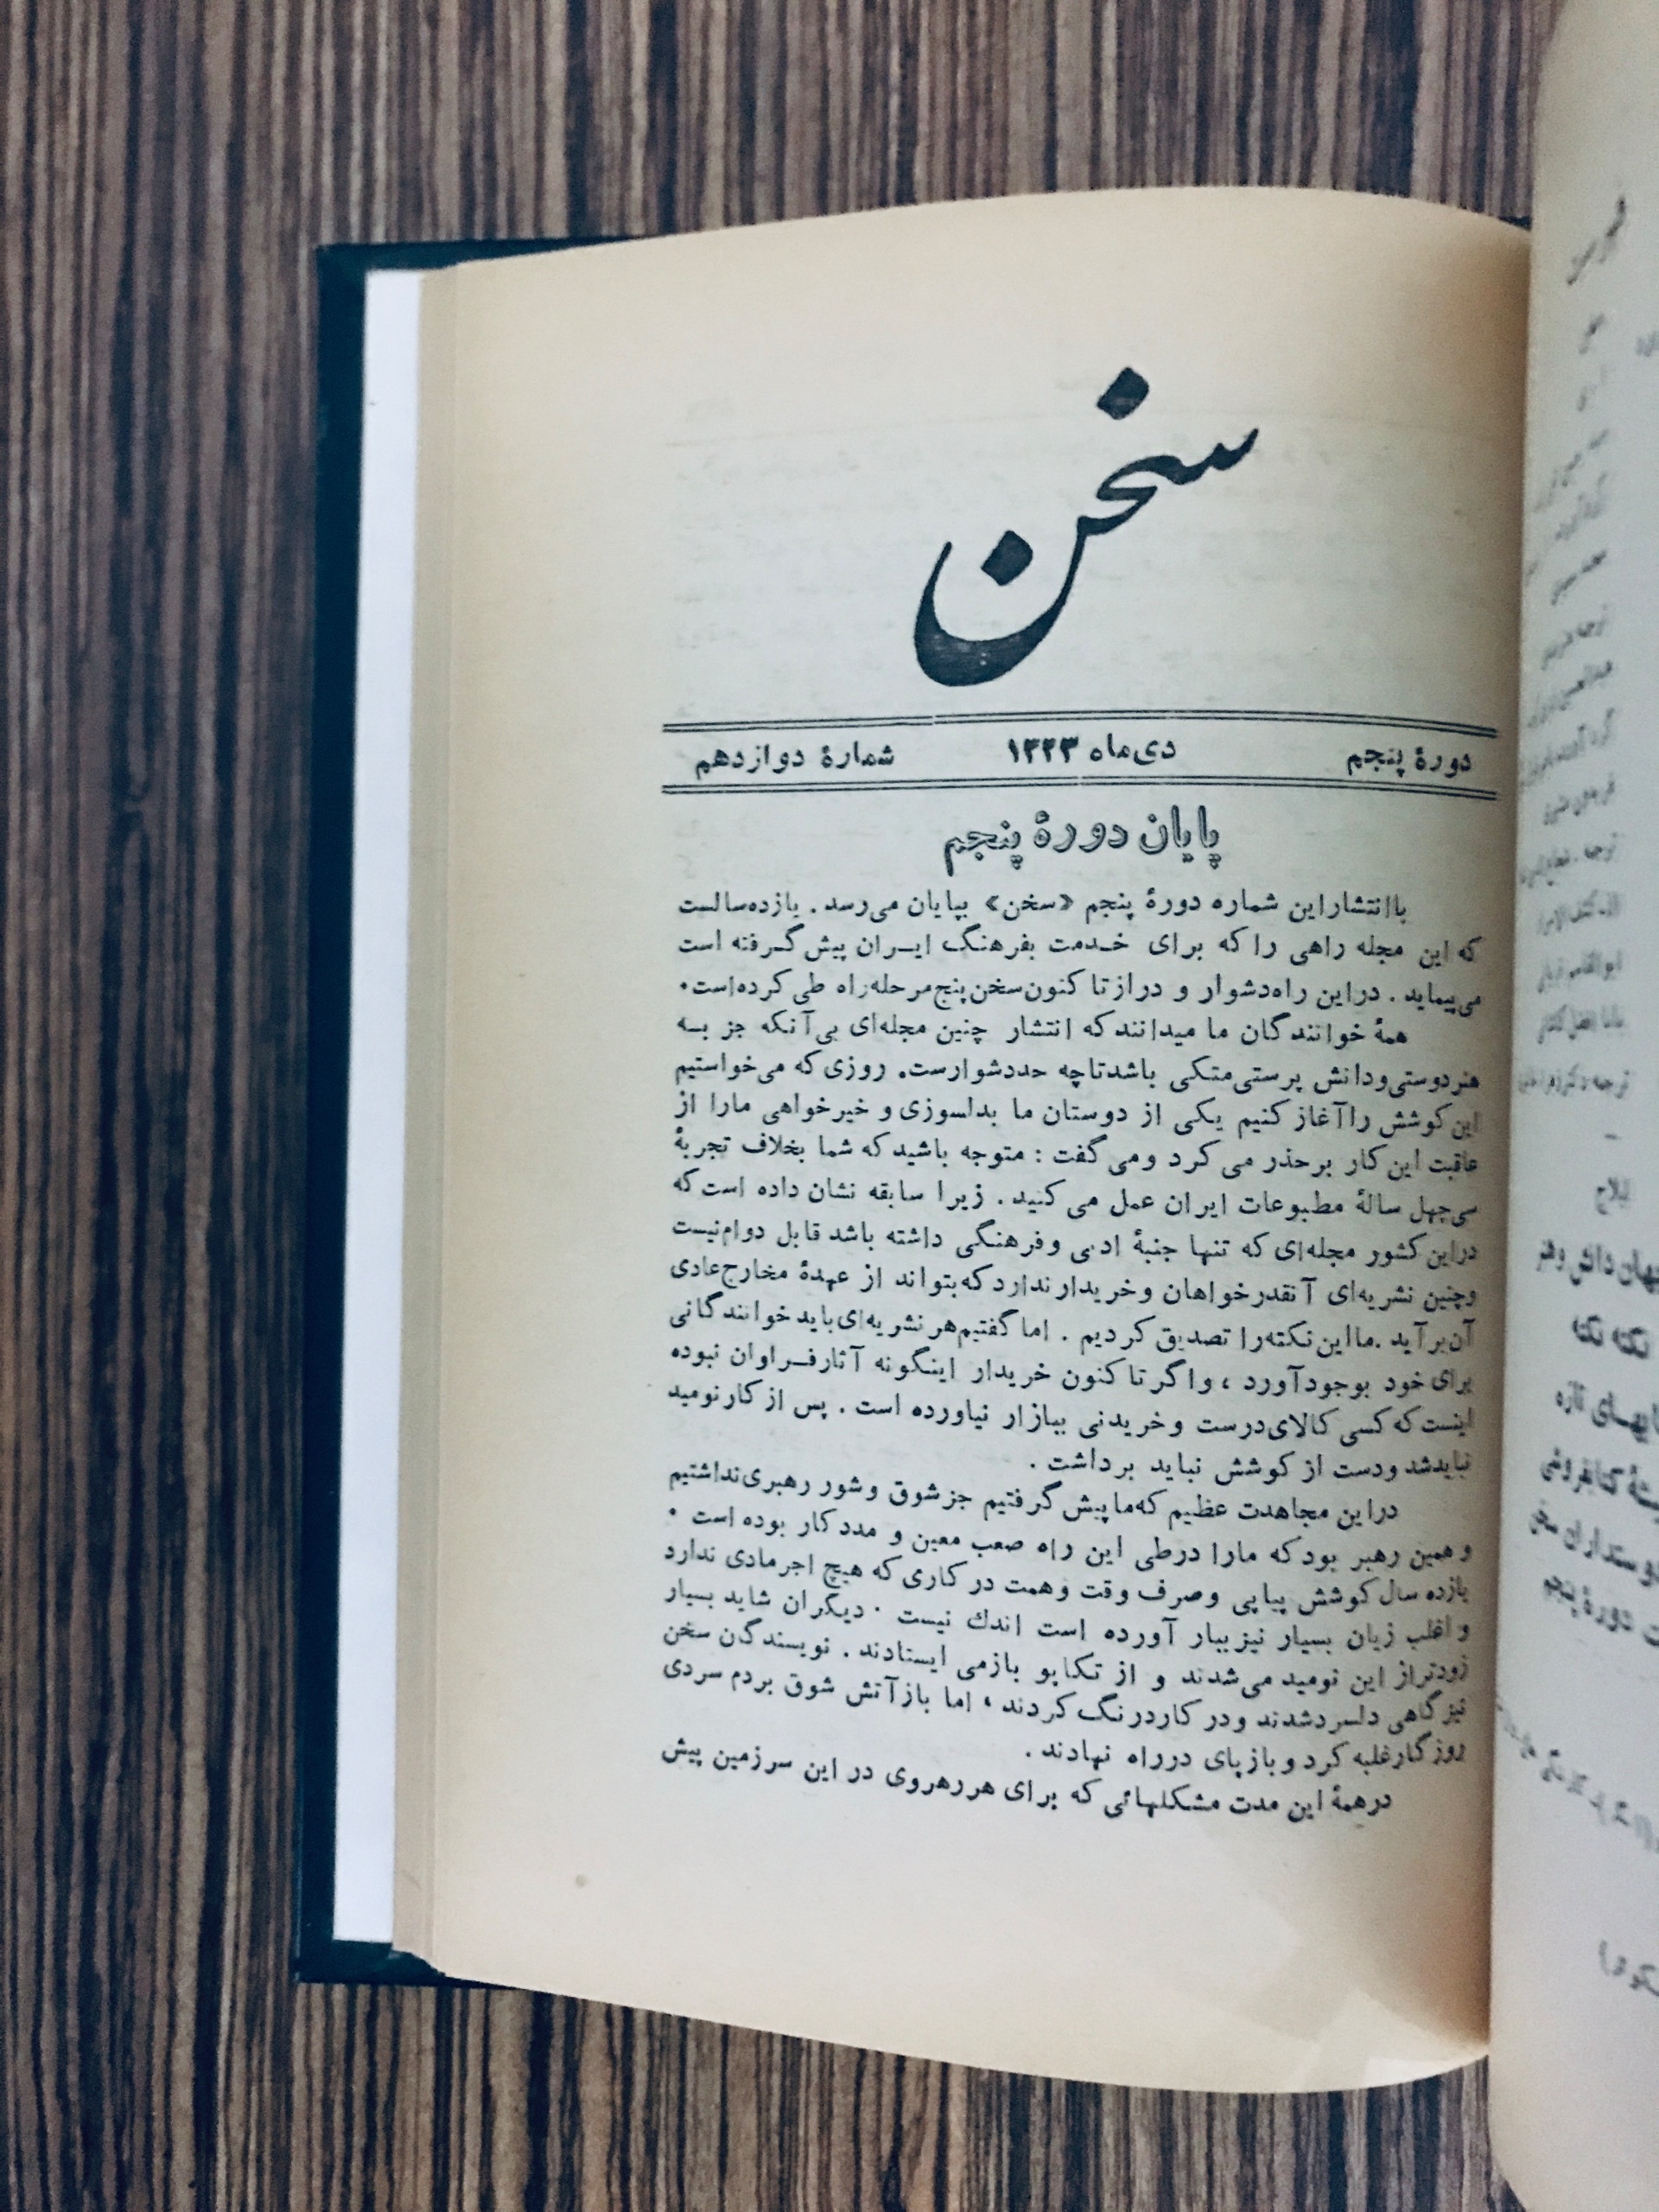 سخن
دورهٔ پنجم دی‌ماه ۱۳۳۳ شمارهٔ دوازدهم
پایان دورهٔ پنجم
باانتشاراین شماره دورهٔ پنجم «سخن» بپایان می‌رسد . یازده‌سالست
که این مجله راهی را که برای خدمت بفرهنگ ایران پیش گرفته است
می‌پیماید . دراین راه‌دشوار و درازتا کنون‌سخن‌پنج‌مرحله‌راه طی کرده‌است.
همهٔ خوانندگان ما میدانند که انتشار چنین مجله‌ای بی‌آنکه جز به
هنردوستی‌ودانش پرستی‌متکی باشدتاچه حددشوارست. روزی که می‌خواستیم
این کوشش راآغاز کنیم یکی از دوستان ما بدلسوزی و خیرخواهی مارا از
عاقبت این کار برحذر می کرد ومی گفت : متوجه باشید که شما بخلاف تجربهٔ
سی‌چهل سالهٔ مطبوعات ایران عمل می کنید . زیرا سابقه نشان داده است که
دراین کشور مجله‌ای که تنها جنبهٔ ادبی وفرهنگی داشته باشد قابل دوام‌نیست
وچنین نشریه‌ای آنقدرخواهان وخریدارندارد که‌بتواند از عهدهٔ مخارج‌عادی
آن‌برآید .مااین‌نکته‌را تصدیق کردیم . اما گفتیم‌هرنشریه‌ای‌باید خوانندگانی
برای خود بوجودآورد ، واگر تا کنون خریدار اینگونه آثارفراوان نبوده
اینست که کسی کالای‌درست وخریدنی ببازار نیاورده است . پس از کارنومید
نبایدشد ودست از کوشش نباید برداشت .
دراین مجاهدت عظیم که‌ماپیش گرفتیم جزشوق وشور رهبری‌نداشتیم
وهمین رهبر بود که مارا درطی این راه صعب معین و مددکار بوده است .
یازده سال کوشش پیاپی وصرف وقت وهمت در کاری که هیچ اجرمادی ندارد
واغلب زیان بسیار نیزببار آورده است اندك نیست . دیگران شاید بسیار
زودتراز این نومید می‌شدند و از تکاپو بازمی ایستادند . نویسندگان سخن
نیز گاهی دلسردشدند ودر کاردرنگ کردند ، اما بازآتش شوق بردم سردی
روزگارغلبه کرد وبازپای درراه نهادند .
درهمهٔ این مدت مشکلهائی که برای هررهروی در این سرزمین پیش